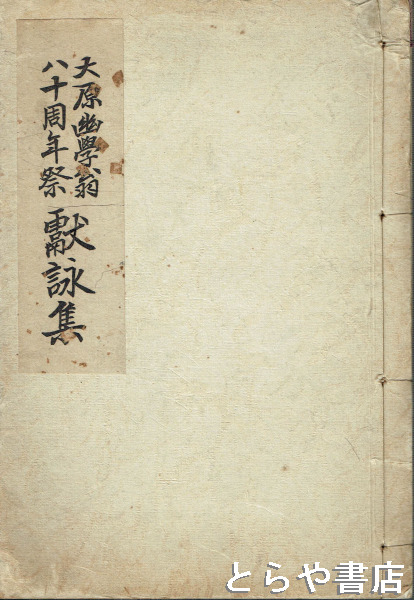 大原幽學翁
八十周年祭
獻詠集
とらや書店